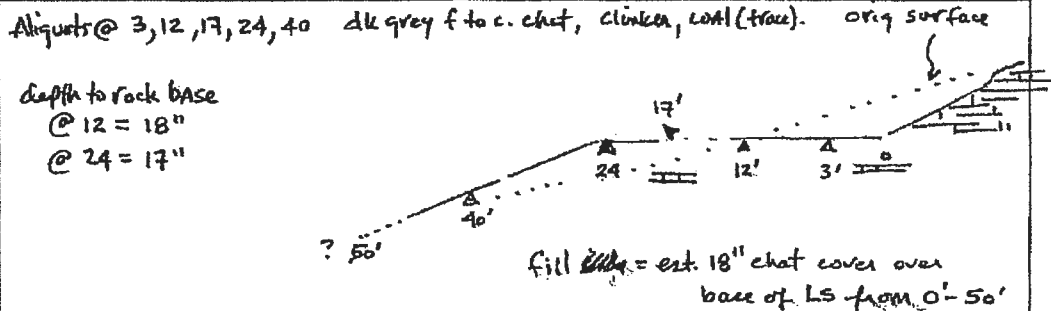 Aliquots @ 3,12,17,24,40 dk grey f to c. chat, clinker, coal (trace). orig surface
depth to rock base
@ 12 = 18"
@ 24 = 17"
17'
0
24
12'
3'
40'
? 50'
fill = est. 18" chat cover over
base of LS from 0'-50'